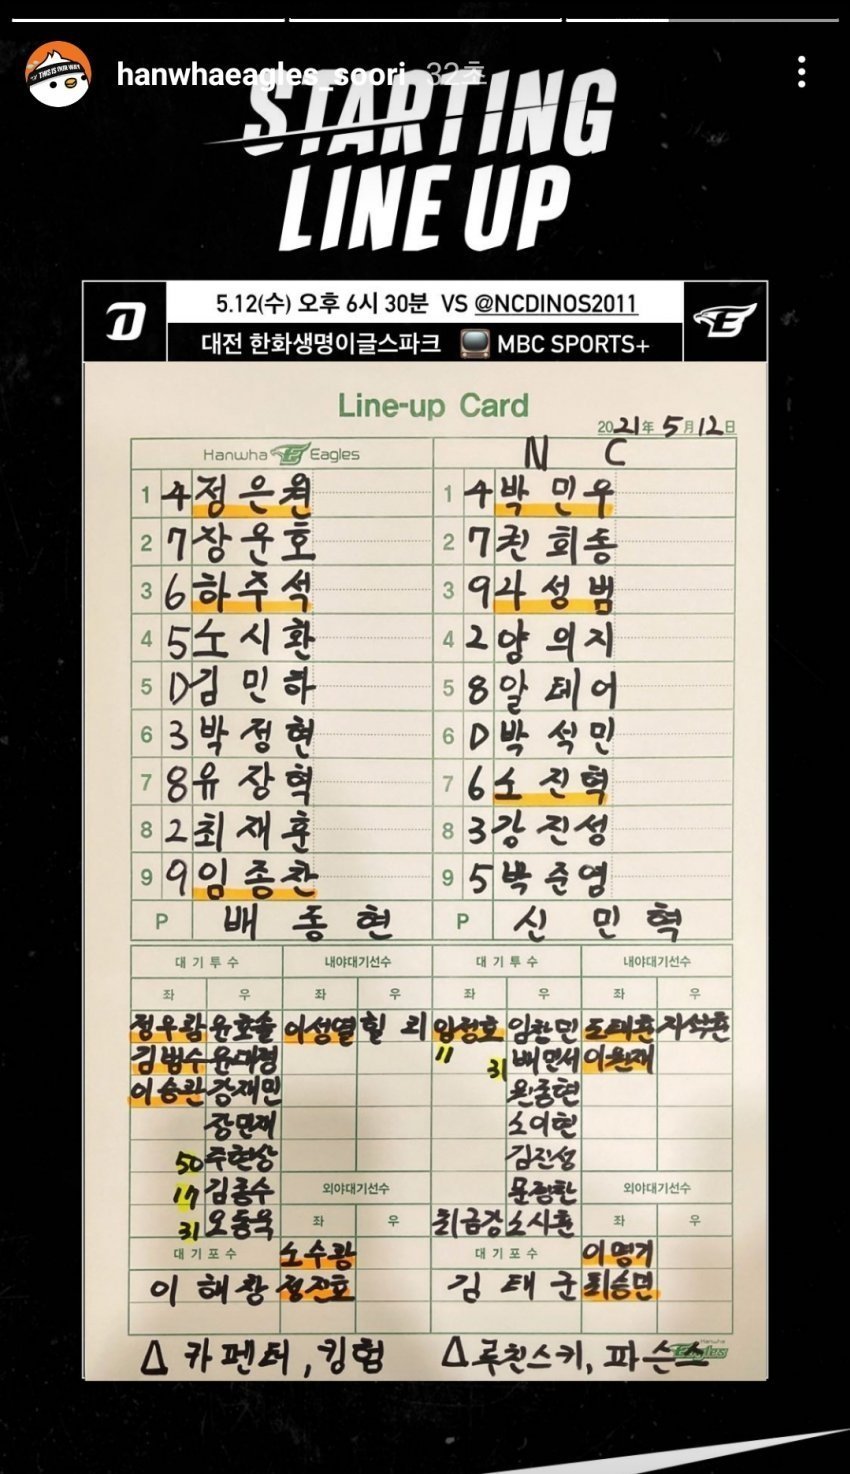 hanwhaeagles_soori 32초
STARTING
LINE UP
5.12(수) 오후 6시 30분 VS @NCDINOS2011
대전 한화생명이글스파크 MBC SPORTS+
Line-up Card
2021年 5月 12日
Hanwha Eagles N C
1 4 정은원 1 4 박민우
2 7 장운호 2 7 권희동
3 6 하주석 3 9 나성범
4 5 노시환 4 2 양의지
5 D 김민하 5 8 알테어
6 3 박정현 6 D 박석민
7 8 유장혁 7 6 노진혁
8 2 최재훈 8 3 강진성
9 9 임종찬 9 5 박준영
P 배동현 P 신민혁
대기투수 내야대기선수 대기투수 내야대기선수
좌 우 좌 우 좌 우 좌 우
정우람 윤호솔 이성열 힐리 임정호 임창민 도태훈 지석훈
김범수 윤대경 11 31 배민서 이원재
이승관 강재민 원종현
장민재 소이현
50 주현상 김진성
17 김종수 외야대기선수 문경찬 외야대기선수
31 오동욱 좌 우 최금강 소시훈 좌 우
대기포수 노수광 대기포수 이명기
이해창 정진호 김태군 최승민
△ 카펜터, 킹험 △ 루친스키, 파슨스
Hanwha Eagles